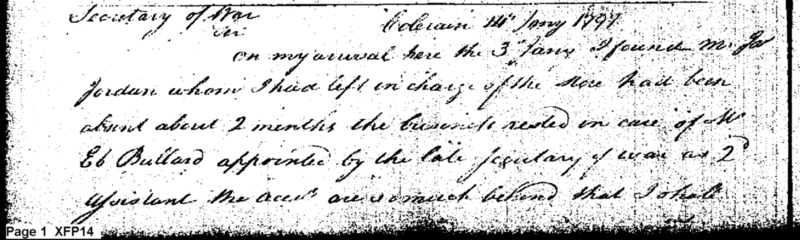 Secretary of War
Sir
Colerain 14th Jany 1797
On my arrival here the 3d Jany I found Mr Jas
Jordan whom I had left in charge of the store had been
absent about 2 months the business rested in care of Mr
Eb Bullard appointed by the late Secretary of War as 2d
assistant the accts are so much behind that I shall
Page 1 XFP14